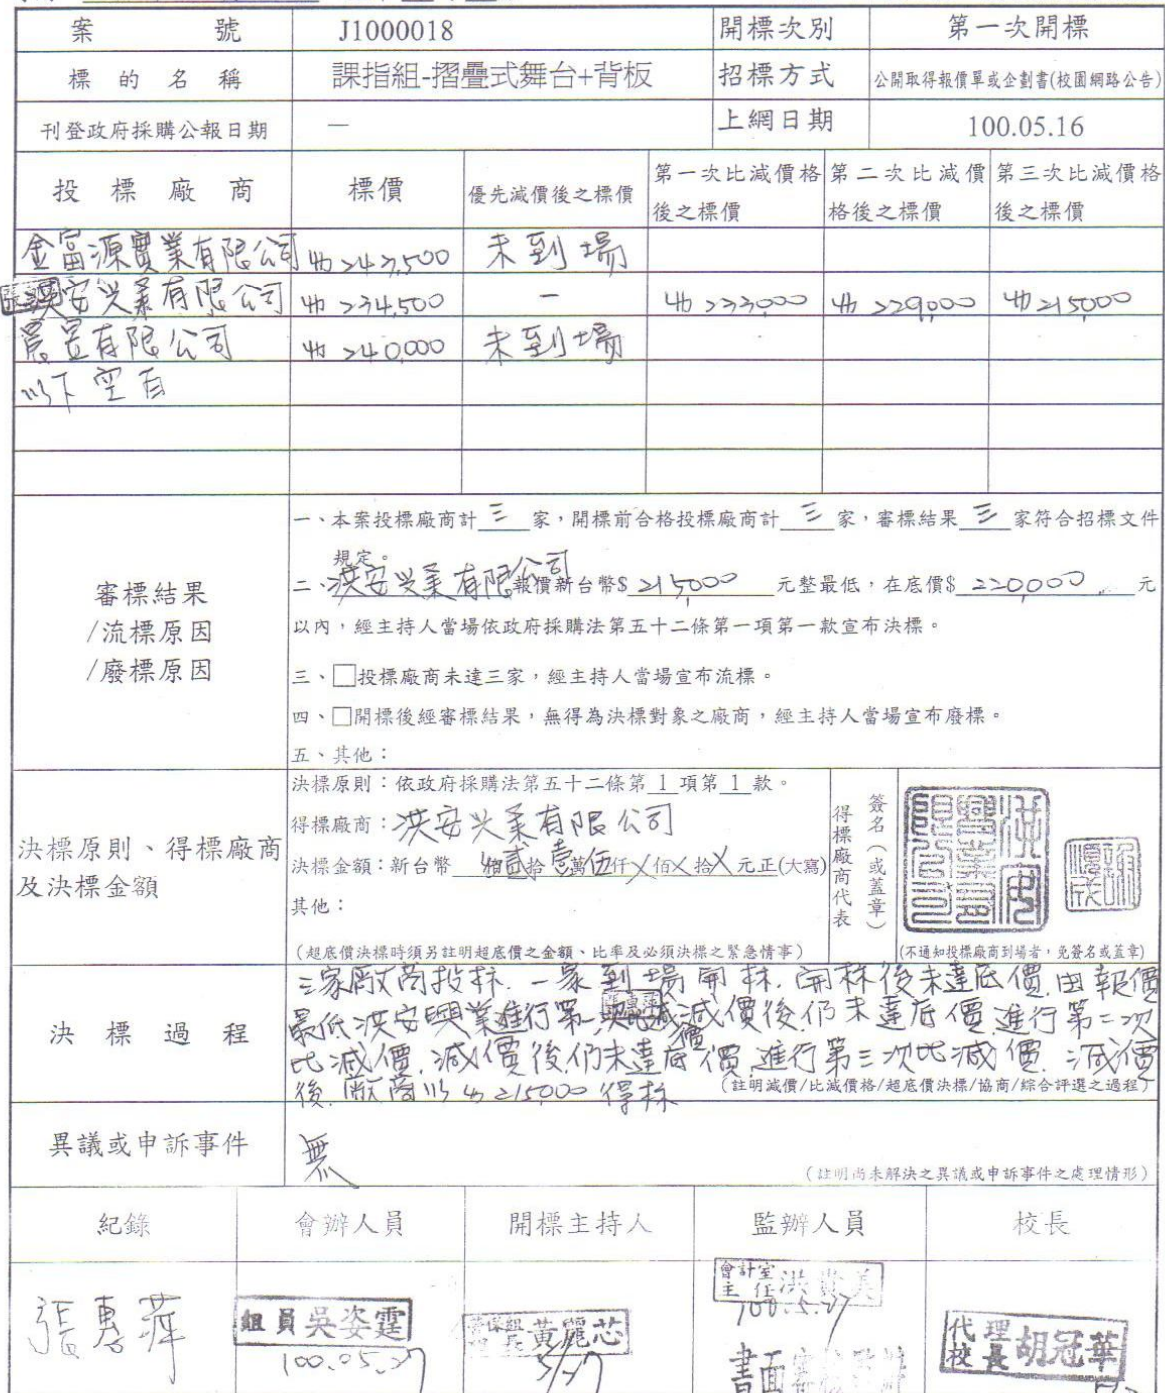 案 號 J1000018 開標次別 第一次開標
標的名稱 課指組-摺疊式舞台+背板 招標方式 公開取得報價單或企劃書(校園網路公告)
刊登政府採購公報日期 — 上網日期 100.05.16
投標廠商 標價 優先減價後之標價 第一次比減價格後之標價 第二次比減價格後之標價 第三次比減價格後之標價
金富源實業有限公司 未到場
洪安兴業有限公司 234,500 — 233,000 229,000 215,000
有限公司 240,000 未到場
以下空白
審標結果
/流標原因
/廢標原因
一、本案投標廠商計 三 家，開標前合格投標廠商計 三 家，審標結果 三 家符合招標文件
規定。
二、洪安兴業有限公司 報價新台幣$ 215,000 元整最低，在底價$ 220,000 元
以內，經主持人當場依政府採購法第五十二條第一項第一款宣布決標。
三、□投標廠商未達三家，經主持人當場宣布流標。
四、□開標後經審標結果，無得為決標對象之廠商，經主持人當場宣布廢標。
五、其他：
決標原則、得標廠商
及決標金額
決標原則：依政府採購法第五十二條第 1 項第 1 款。
得標廠商：洪安兴業有限公司
決標金額：新台幣 佰貳拾壹萬伍仟X佰X拾X元正(大寫)
其他：
(超底價決標時須另註明超底價之金額、比率及必須決標之緊急情事)
得標廠商代表
簽名(或蓋章)
洪安興業有限公司
(不通知投標廠商到場者，免簽名或蓋章)
決標過程
三家廠商投标.一家到場開标.開标後未達底價.由報價
最低洪安興業進行第一次減價後仍未達底價.進行第二次
比減價.減價後仍未達底價.進行第三次比減價.減價
後.廠商以 215,000 得标
(註明減價/比減價格/超底價決標/協商/綜合評選之過程)
異議或申訴事件 無
(註明尚未解決之異議或申訴事件之處理情形)
紀錄 會辦人員 開標主持人 監辦人員 校長
張惠萍
組員吳姿霆
100.05.27
組長黃麗芯
5/27
會計室主任洪貴美
100.5.27
書面審核監辦
代理校長胡冠華